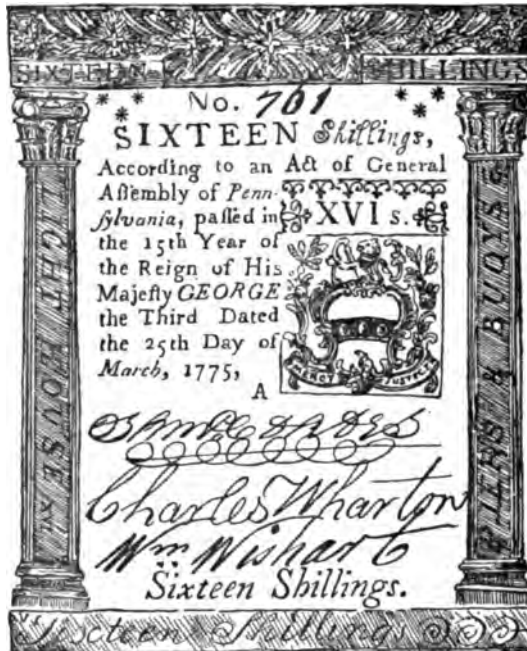 SIXTEEN SHILLINGS
No. 761
SIXTEEN Shillings,
According to an Act of General
Aſſembly of Penn-
ſylvania, paſſed in
the 15th Year of
the Reign of His
Majeſty GEORGE
the Third Dated
the 25th Day of
March, 1775,
A
XVI s.
MERCY JUSTICE
LIGHT HOUSE
PIERS & BUOYS
Charles Wharton
Wm Wishart
Sixteen Shillings.
Sixteen Shillings